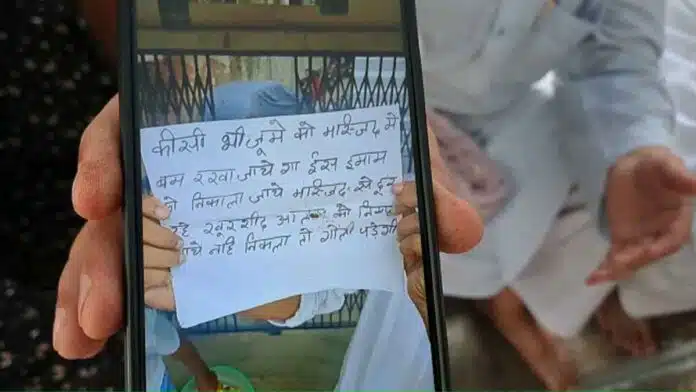 कीसी भी जूमे को मास्जिद मे
बम रखा जाये गा ईस इमाम
को निकाला जाये मास्जिद से दूर
रहे खूरशीद आलम को
जाये नहि निकला तो गोली पड़ेगी